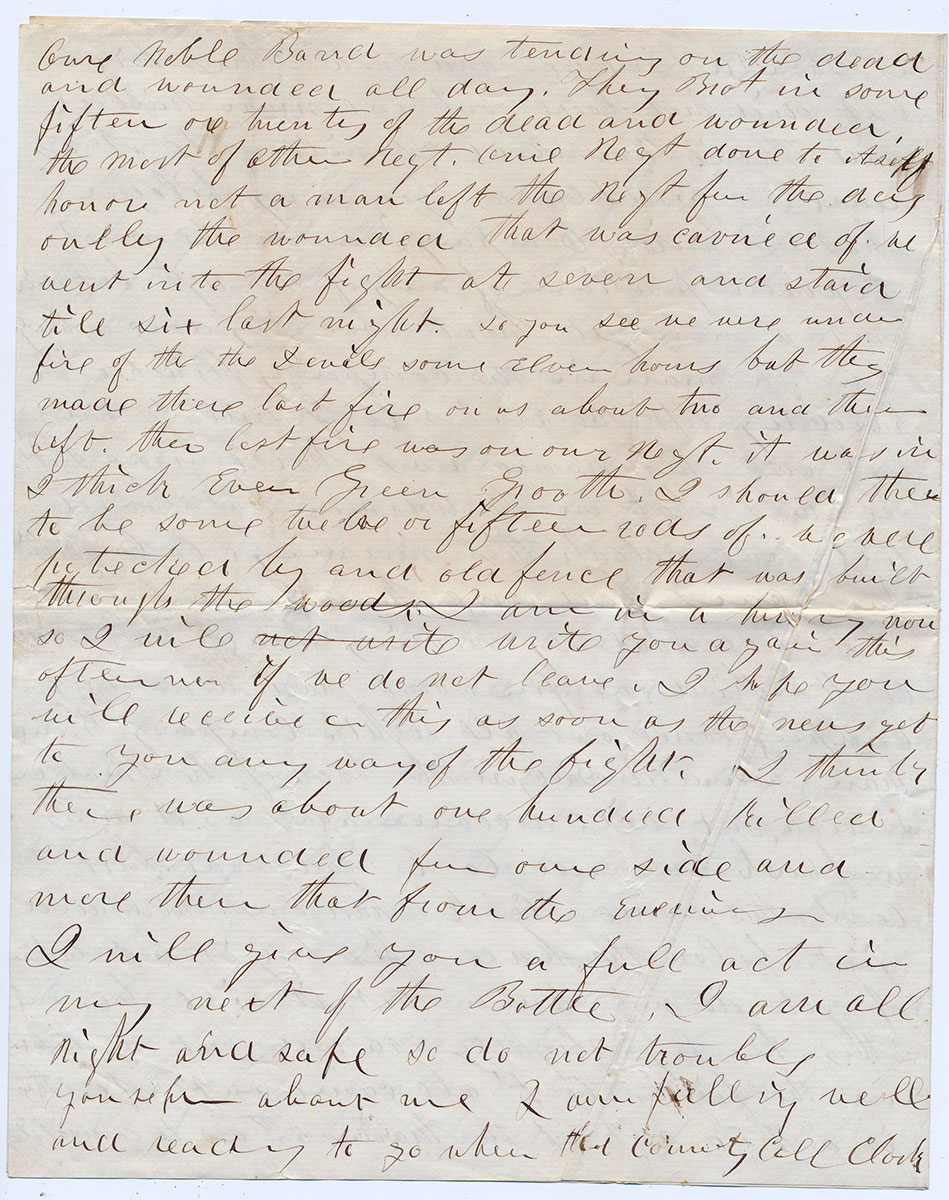 Oure Noble Band was tending on the dead
and wounded all day. They Brot in some
fiften ore twenty of the dead and wounded,
the most of other Regt. oure Regt done to itself
honor not a man left the Regt for the day
onlly the wounded that was carried of. we
went into the fight at seven and staid
till six last night. so you see we were under
fire of the the Devils some eleven hours but they
made there last fire on us about two and then
left. ther last fire was on our Regt. it was in
a thick Ever Green Grooth. I should think
to be some twelve or fifteen rods of. we were
protected by and old fence that was built
through the woods. I am in a hurry now
so I will not write write you again this
afternoon if we do not leave. I hope you
will receive this as soon as the news get
to you any way of the fight. I think
there was about one hundred Killed
and wounded from oure side and
more then that from the Enemy
I will give you a full act in
my next of the Battle. I am all
Right and safe so do not trouble
yourself about me I am felling well
and ready to go when the County Call Clark